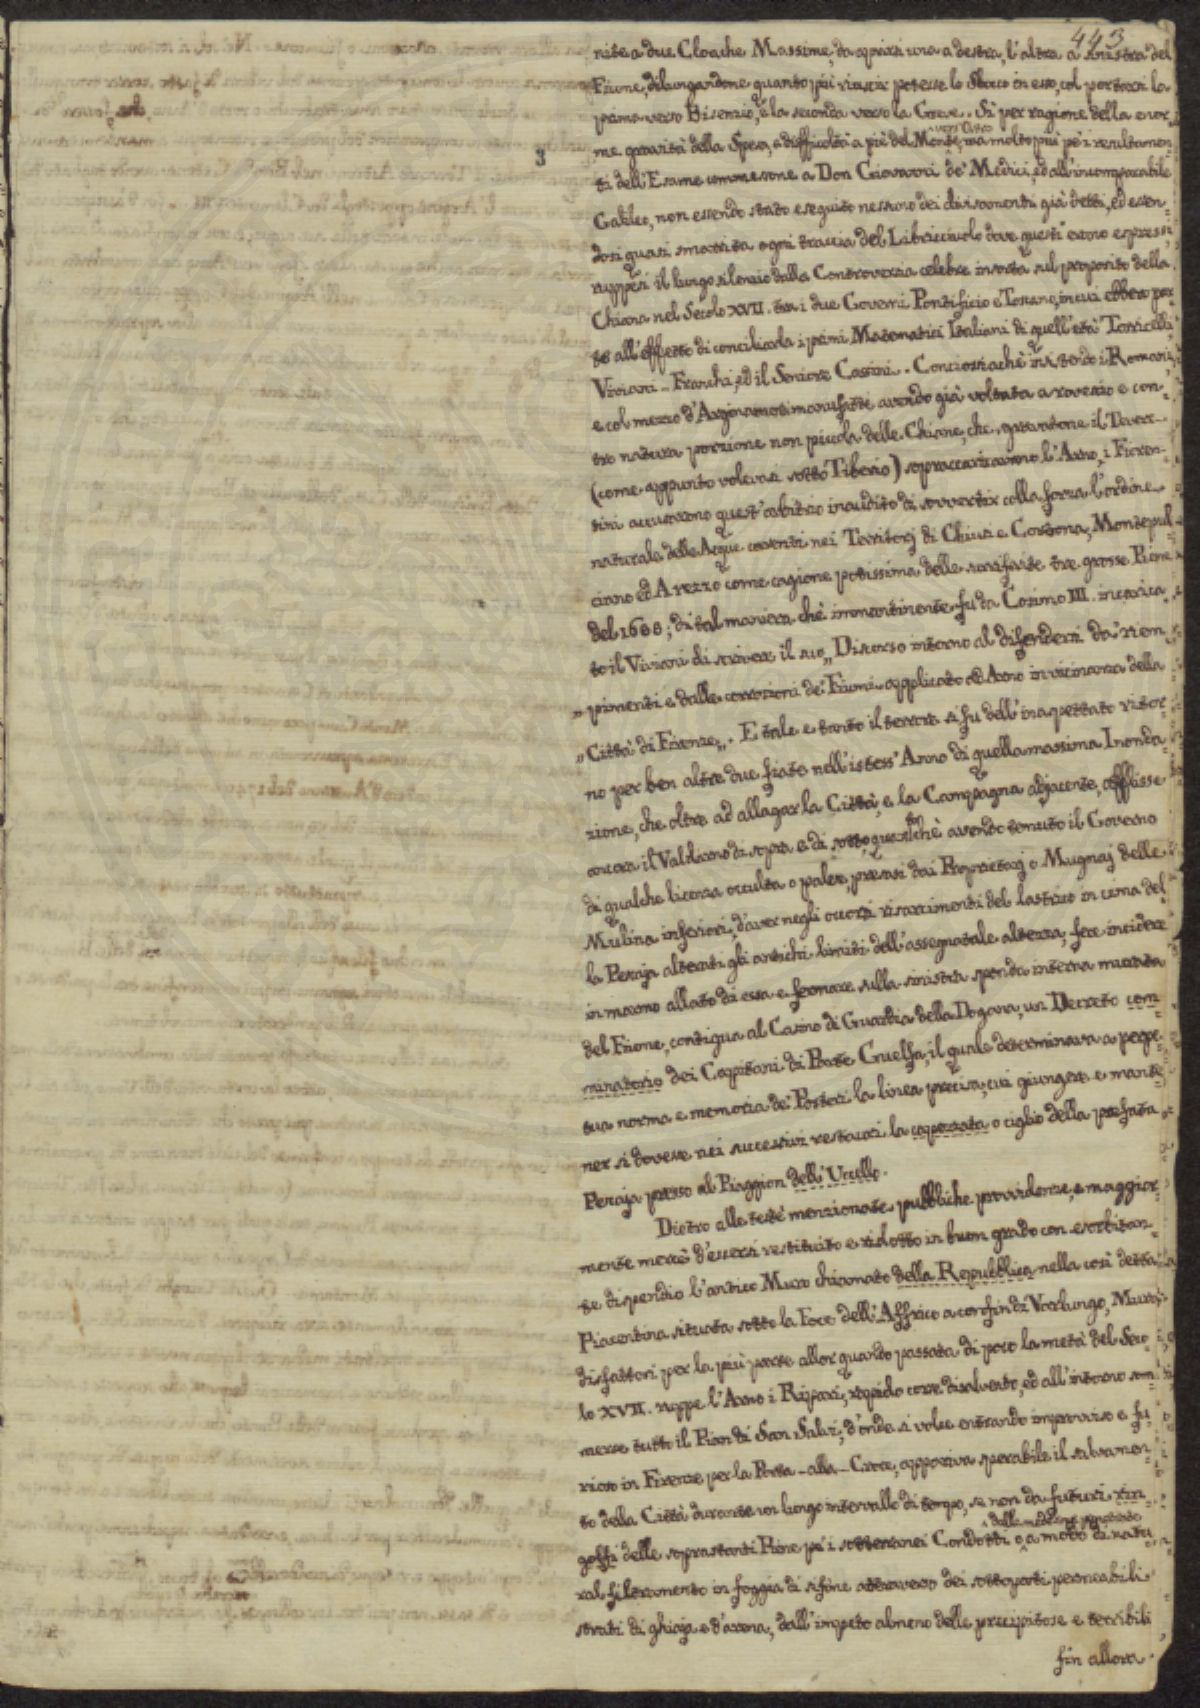 443
nite a due Cloache Massime, da aprirsi una a destra, l'altra a sinistra del
Fiume, dilungandone quanto più riuscir potesse lo sbocco in esso, col portarsi la
prima verso Bisenzio, e la seconda verso la Greve. Sì per ragione della enor=
me gravità della Spesa, e difficoltà a piè del Monte, ma molto più pe' i resultamen=
ti dell'Esame commessone a Don Giovanni de' Medici, ed all'incomparabile
Galileo, non essendo stato eseguito nessuno dei divisamenti già detti, ed essen=
dosi quasi smarrita ogni traccia del Libricciuolo dove questi erano espressi,
ruppesi il lungo silenzio dalla Controversia celebre insorta sul proposito della
Chiana nel Secolo XVII. tra i due Governi Pontificio e Toscano, in cui ebbero par=
te all'effetto di conciliarla i primi Matematici Italiani di quell'età Torricelli,
Viviani - Franchi, ed il Seniore Cassini. Conciossiachè insistendo i Romani,
e col mezzo d'Argini amosi manufatti avendo già voltata a rovescio e con=
tro natura porzione non piccola delle Chiane, che, gravatone il Tevere
(come appunto volevasi sotto Tiberio) sopraccaricavano l'Arno, i Fioren=
tini accusarono quest'arbitrio inaudito di sovvertir colla forza l'ordine
naturale delle Acque correnti nei Territorj di Chiusi e Cortona, Montepul
ciano ed Arezzo come cagione potissima delle surriferite tre grosse Piene
del 1688; di tal maniera che immantinente fu da Cosimo III. incarica
to il Viviani di scrivere il suo „ Discorso intorno al difendersi da' riem
„ pimenti e dalle corrosioni de' Fiumi applicato ad Arno in vicinanza della
„ Città di Firenze „. E tale e tanto il terrore si fu dell'inaspettato ritor=
no per ben altre due fiate nell'istess'Anno di quella massima Inonda=
zione, che oltre ad allagar la Città, e la Campagna adjacente, afflisse
ancora il Valdarno di sopra e di sotto, che avendo temuto il Governo
di qualche licenza occulta o palese, presasi dai Proprietarj o Mugnaj delle
Mulina inferiori, d'aver negli occorsi risarcimenti del lastrico in cima del
la Pescaja alterati gli antichi limiti dell'assegnatale altezza, fece incidere
in marmo allato di essa e fermare sulla sinistra sponda interna murata
del Fiume, contigua al Casino di Guardia della Dogana, un Decreto com
minatorio dei Capitani di Parte Guelfa, il quale determinava a perpe=
tua norma e memoria de' Posteri la linea precisa, cui giungere e mante=
ner si dovesse nei successivi restauri la capezzata o ciglio della prefata
Pescaja presso al Piaggion dell'Uccello.
Dietro alle testè menzionate pubbliche provvidenze, e maggior=
mente mercè d'essersi restituito e ridotto in buon grado con esorbitan=
te dispendio l'antico Muro chiamato della Repubblica nella così detta
Piacentina situata sotto la Foce dell'Affrico a confin di Varlungo, Muro,
disfattosi per la più parte allor quando passata di poco la metà del Seco=
lo XVII. ruppe l'Arno i Ripari, rapido corse disalveato, ed all'intorno som=
merse tutto il Pian di San Salvi, d'onde si volse entrando improvviso e fu
rioso in Firenze per la Porta - alla - Croce, appariva sperabile il salvamen=
to della Città durante un lungo intervallo di tempo, se non da futuri rin=
goffi delle soprastanti Piene pe' i sotterranei Condotti o, a modo di natu
ral filtramento in foggia di sifone attraverso dei sottoposti permeabili
strati di ghiaja e d'arena, dall'impeto almeno delle precipitose e terribili
fin allora